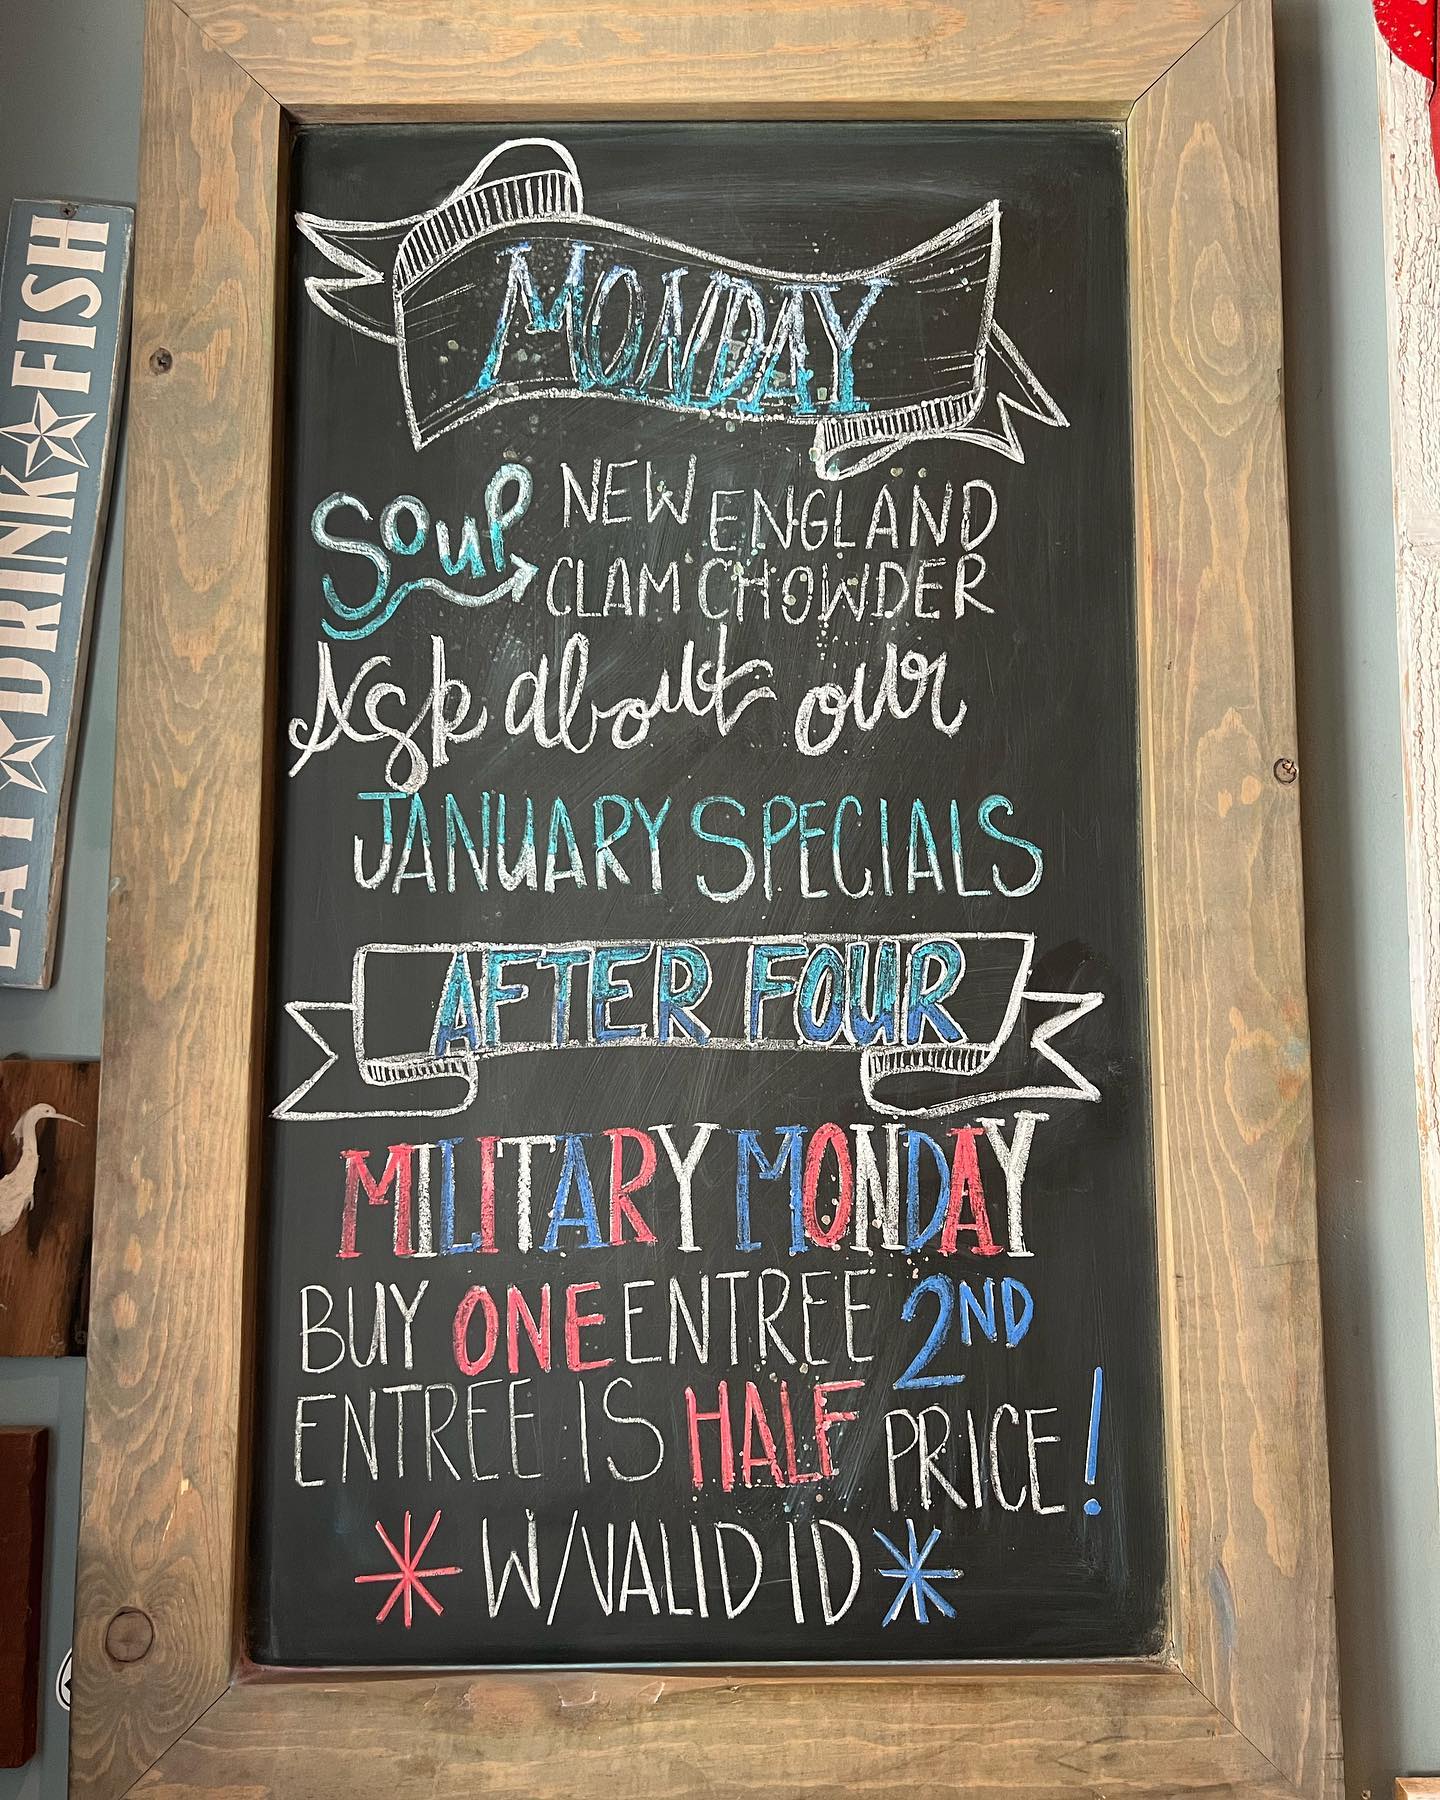 MONDAY
Soup NEW ENGLAND
CLAM CHOWDER
Ask about our
JANUARY SPECIALS
AFTER FOUR
MILITARY MONDAY
BUY ONE ENTREE 2ND
ENTREE IS HALF PRICE!
* W/VALID ID *
EAT ★ DRINK ★ FISH